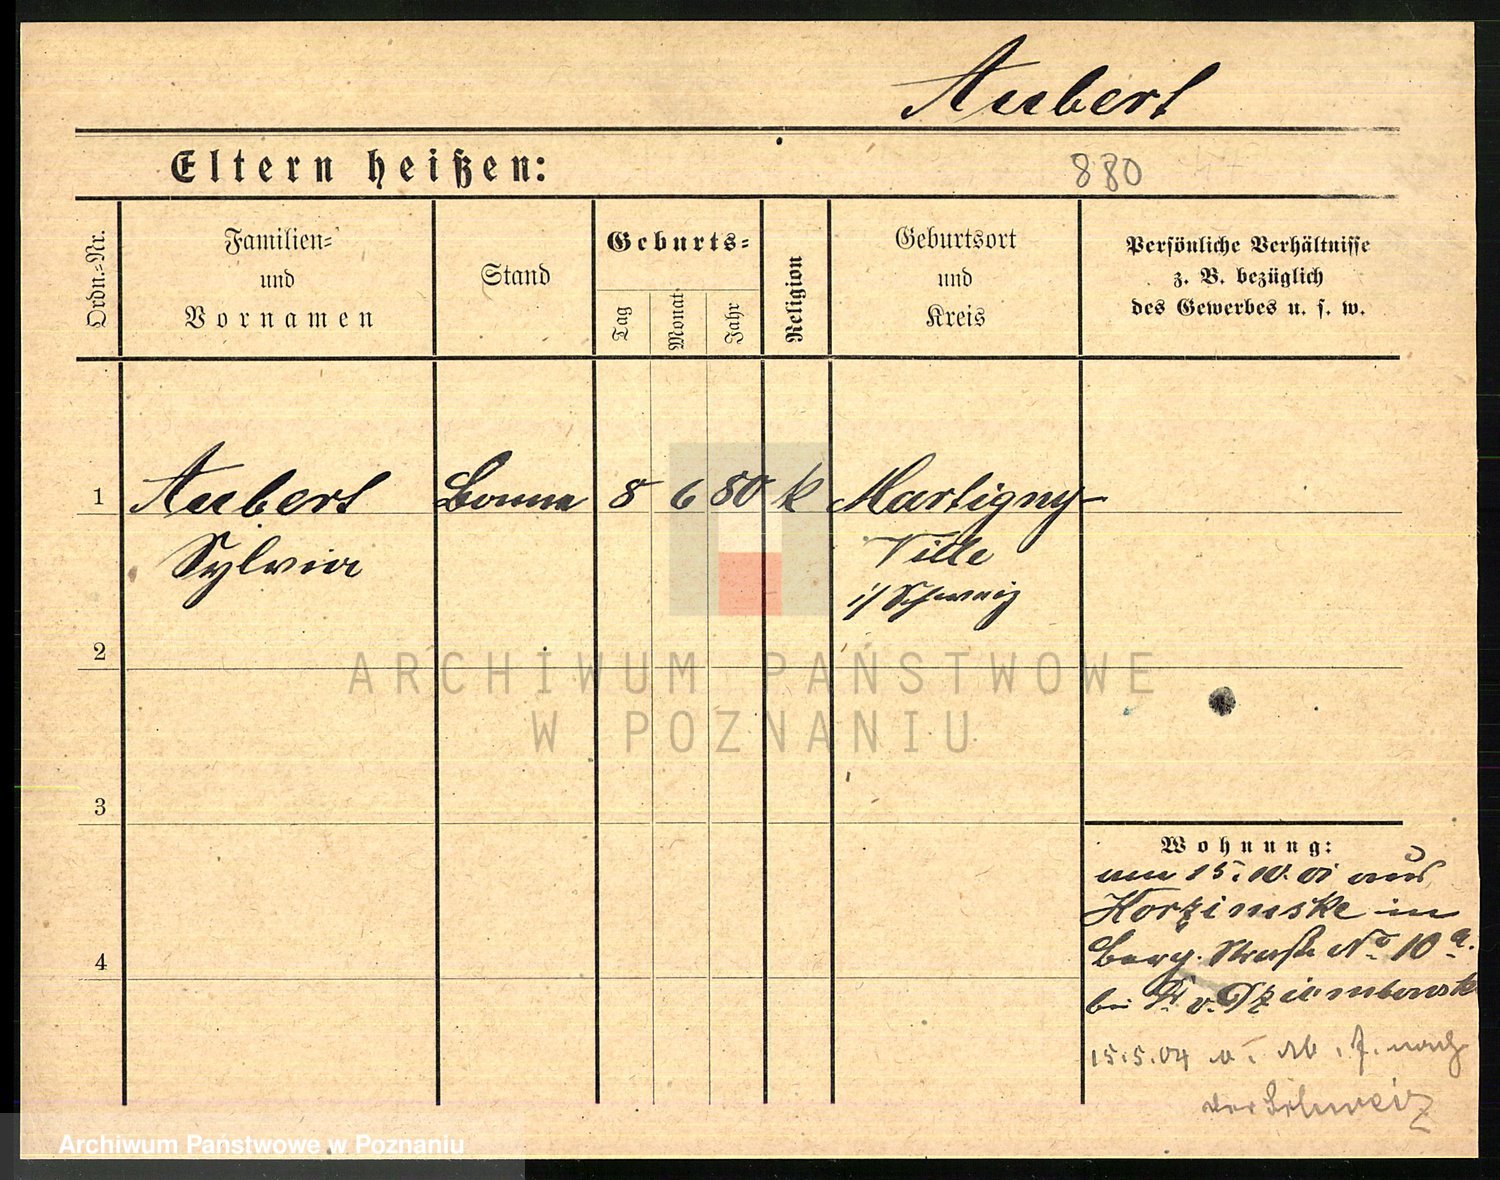 Aubert
Eltern heißen:
880
Ordn.-Nr.
Familien-
und
Vornamen
Stand
Geburts-
Tag
Monat
Jahr
Religion
Geburtsort
und
Kreis
Persönliche Verhältnisse
z. B. bezüglich
des Gewerbes u. s. w.
1 Aubert Bonne 8 6 80 k Martigny-
Sylvia Ville
i/ Schweiz
2
ARCHIWUM PAŃSTWOWE
W POZNANIU
3
Wohnung:
am 15.10.01 aus
Korzimske in
4
Berg-Straße No 10a.
bei v. Dziembowsk
15.5.04 nach
der Schweiz
Archiwum Państwowe w Poznaniu